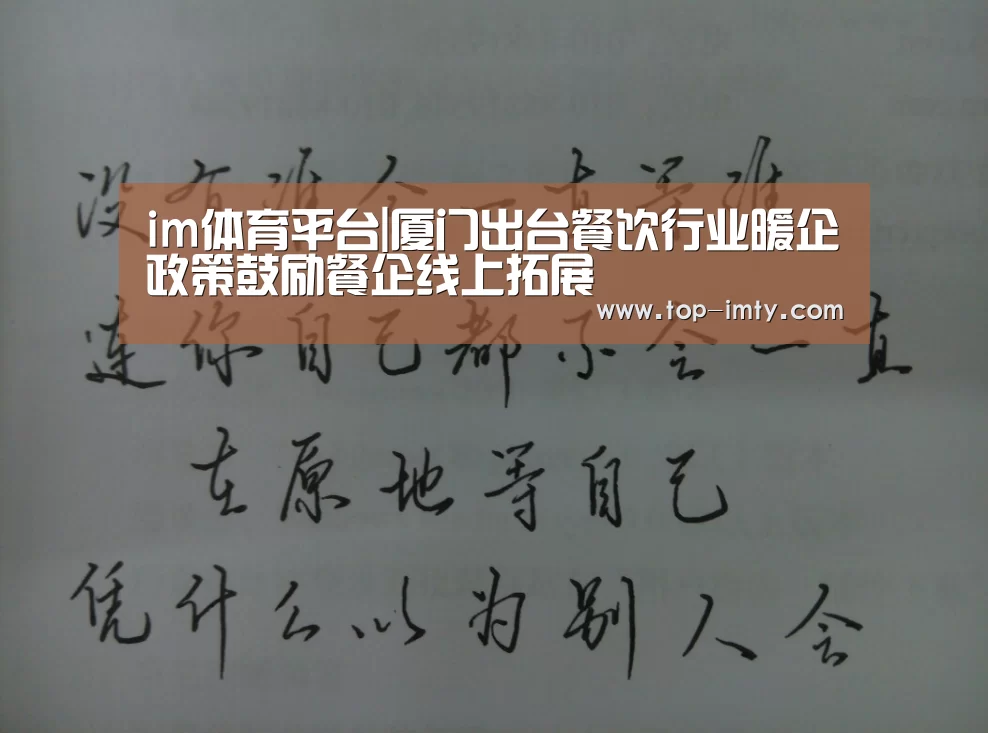 没有谁会一直等谁
im体育平台|厦门出台餐饮行业暖企
政策鼓励餐企线上拓展
www.top-imty.com
连你自己都不会一直
在原地等自己
凭什么以为别人会